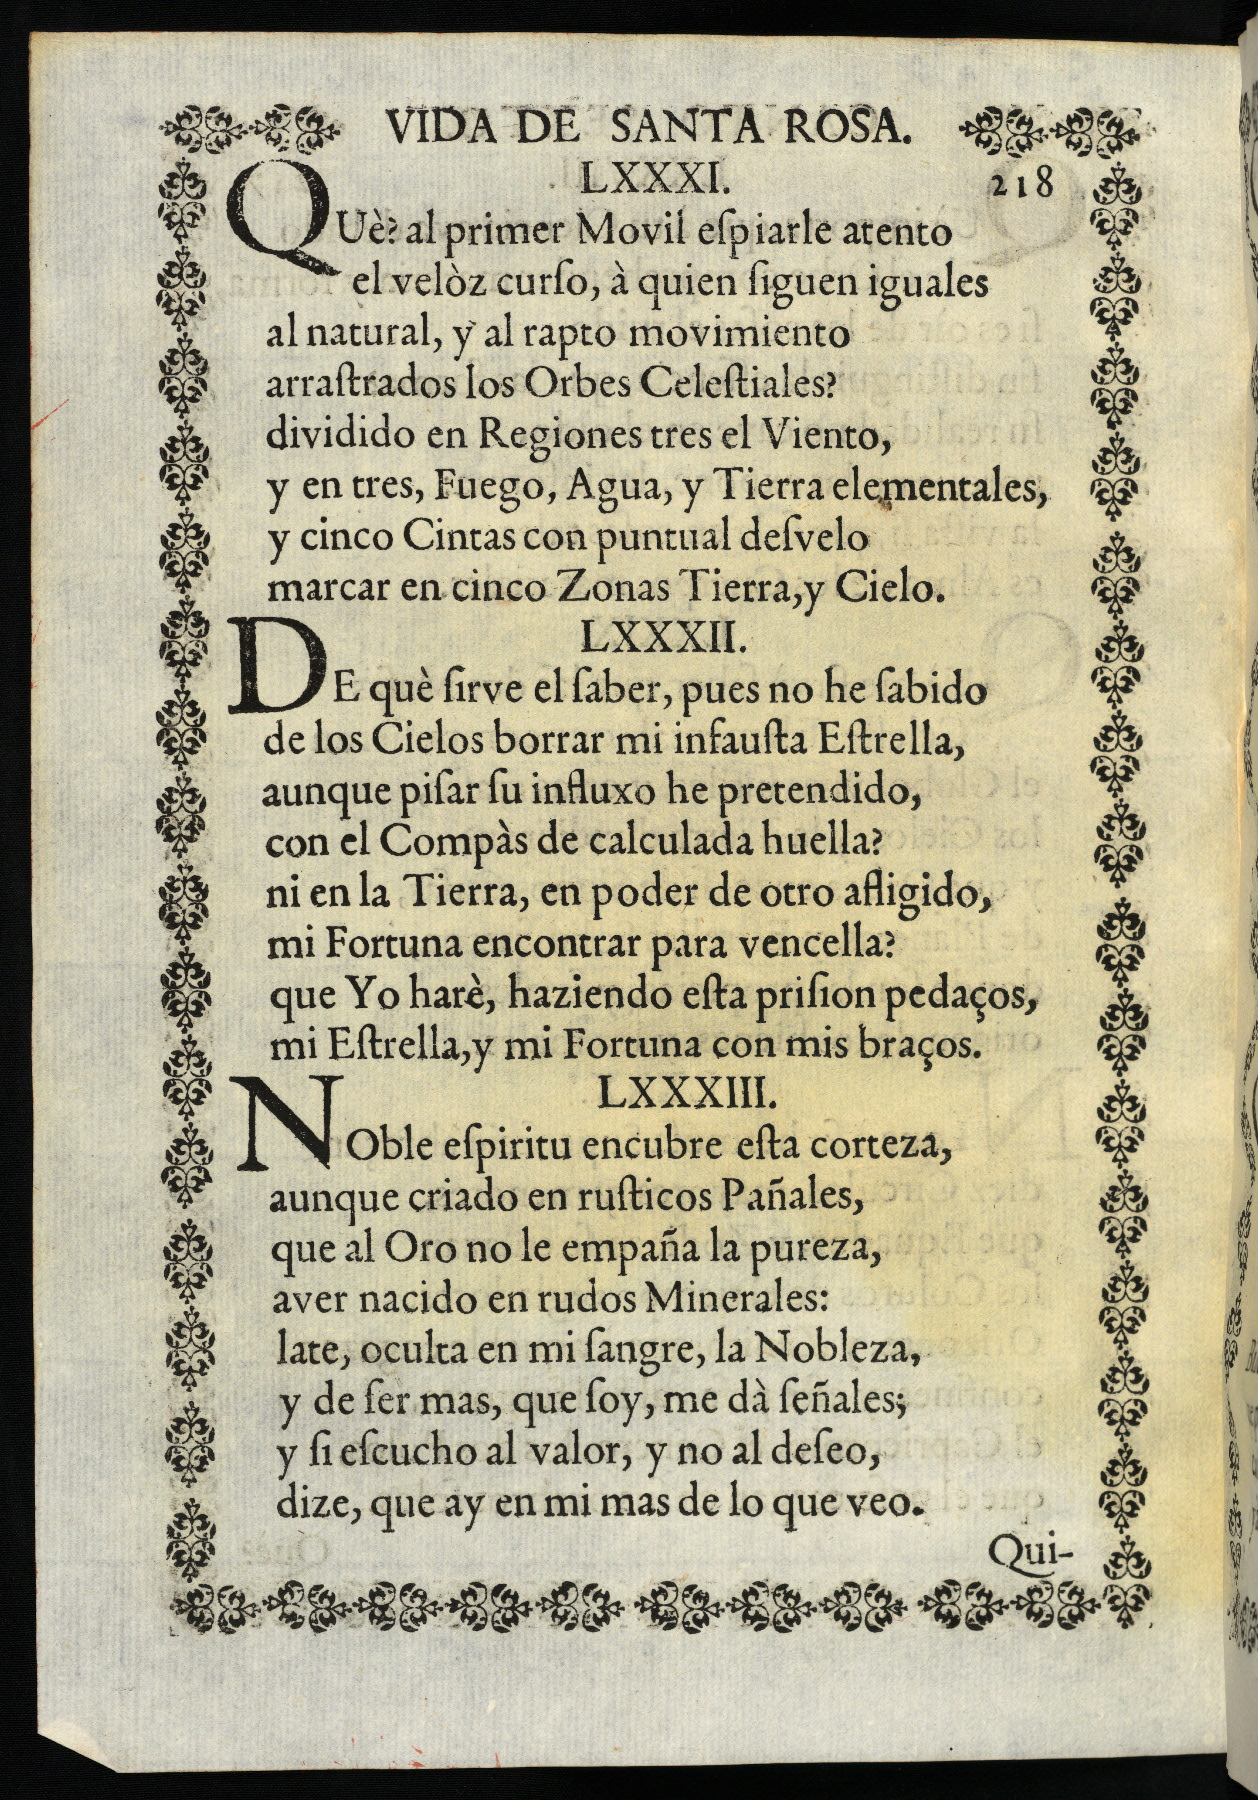 VIDA DE SANTA ROSA.
LXXXI. 218
QUè? al primer Movil eſpiarle atento
el velòz curſo, à quien ſiguen iguales
al natural, y al rapto movimiento
arraſtrados los Orbes Celeſtiales?
dividido en Regiones tres el Viento,
y en tres, Fuego, Agua, y Tierra elementales,
y cinco Cintas con puntual deſvelo
marcar en cinco Zonas Tierra,y Cielo.
LXXXII.
DE què ſirve el ſaber, pues no he ſabido
de los Cielos borrar mi infauſta Eſtrella,
aunque piſar ſu influxo he pretendido,
con el Compàs de calculada huella?
ni en la Tierra, en poder de otro afligido,
mi Fortuna encontrar para vencella?
que Yo harè, haziendo eſta priſion pedaços,
mi Eſtrella,y mi Fortuna con mis braços.
LXXXIII.
NOble eſpiritu encubre eſta corteza,
aunque criado en ruſticos Pañales,
que al Oro no le empaña la pureza,
aver nacido en rudos Minerales:
late, oculta en mi ſangre, la Nobleza,
y de ſer mas, que ſoy, me dà ſeñales;
y ſi eſcucho al valor, y no al deſeo,
dize, que ay en mi mas de lo que veo.
Qui-